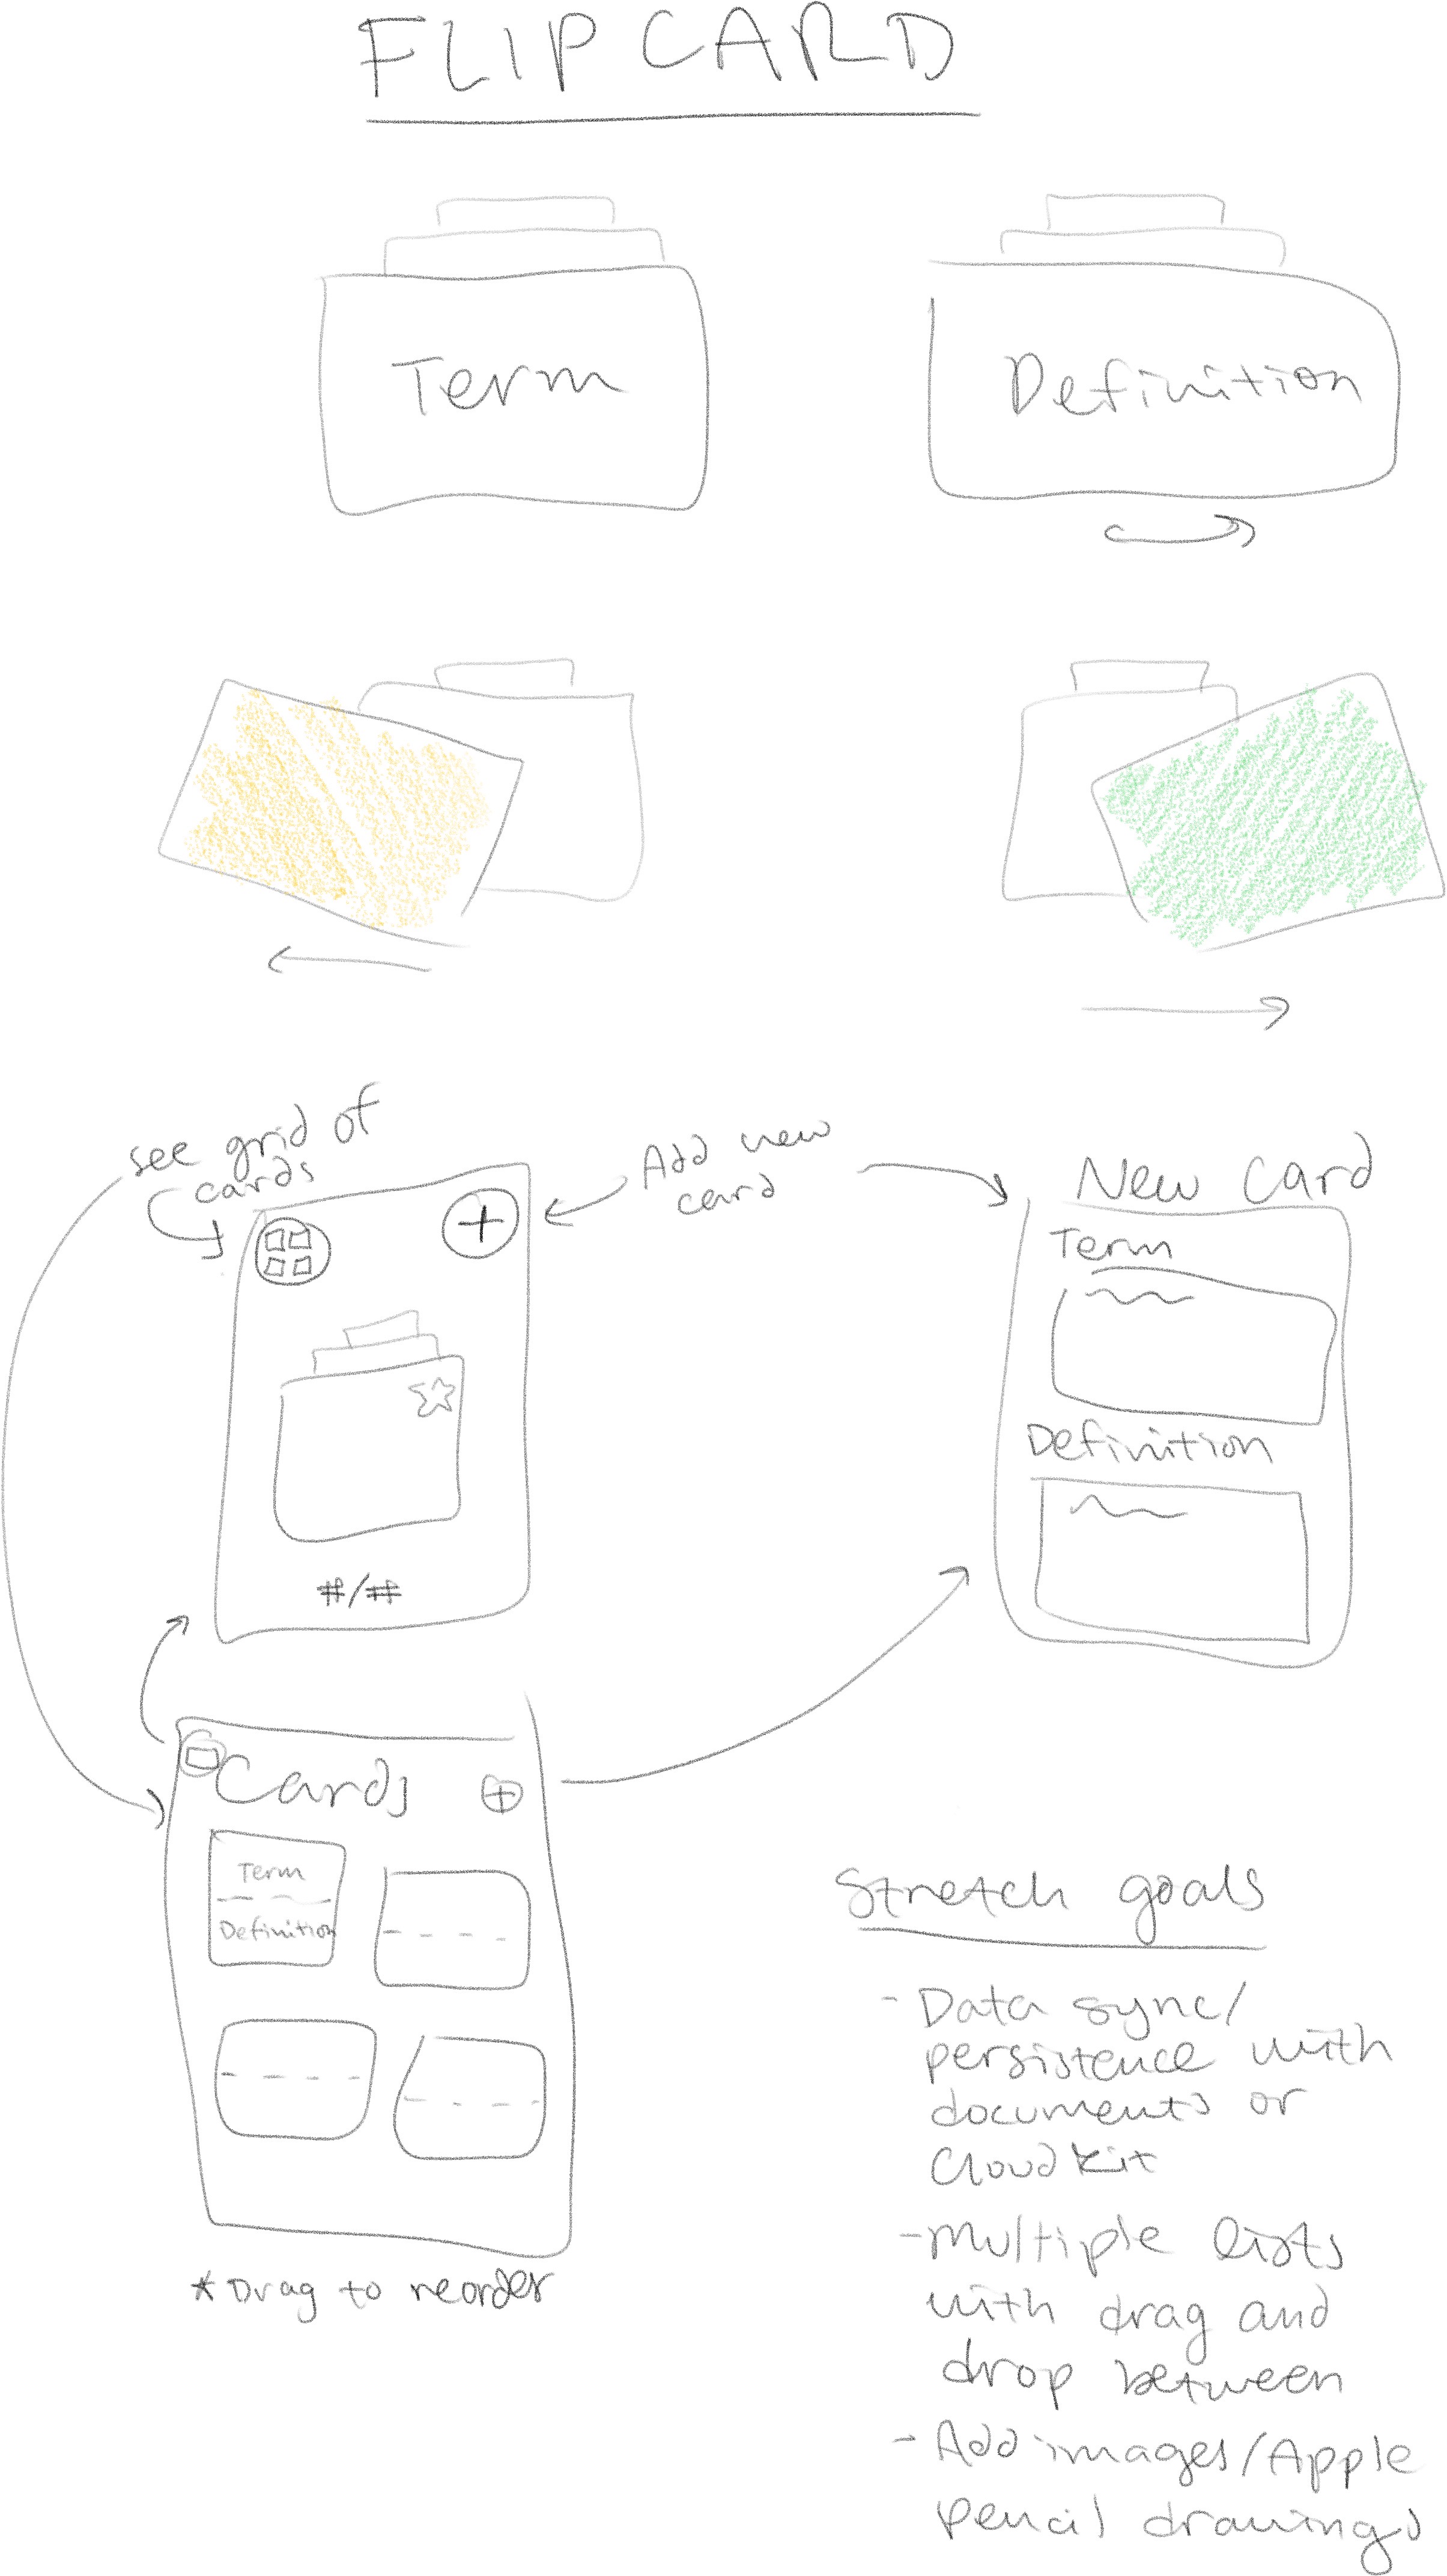 FLIPCARD
Term
Definition
see grid of
cards
Add new
card
New Card
Term
Definition
#/#
Cards
Term
Definition
*Drag to reorder
Stretch goals
- Data sync/
persistence with
documents or
CloudKit
- Multiple lists
with drag and
drop between
- Add images/Apple
pencil drawings